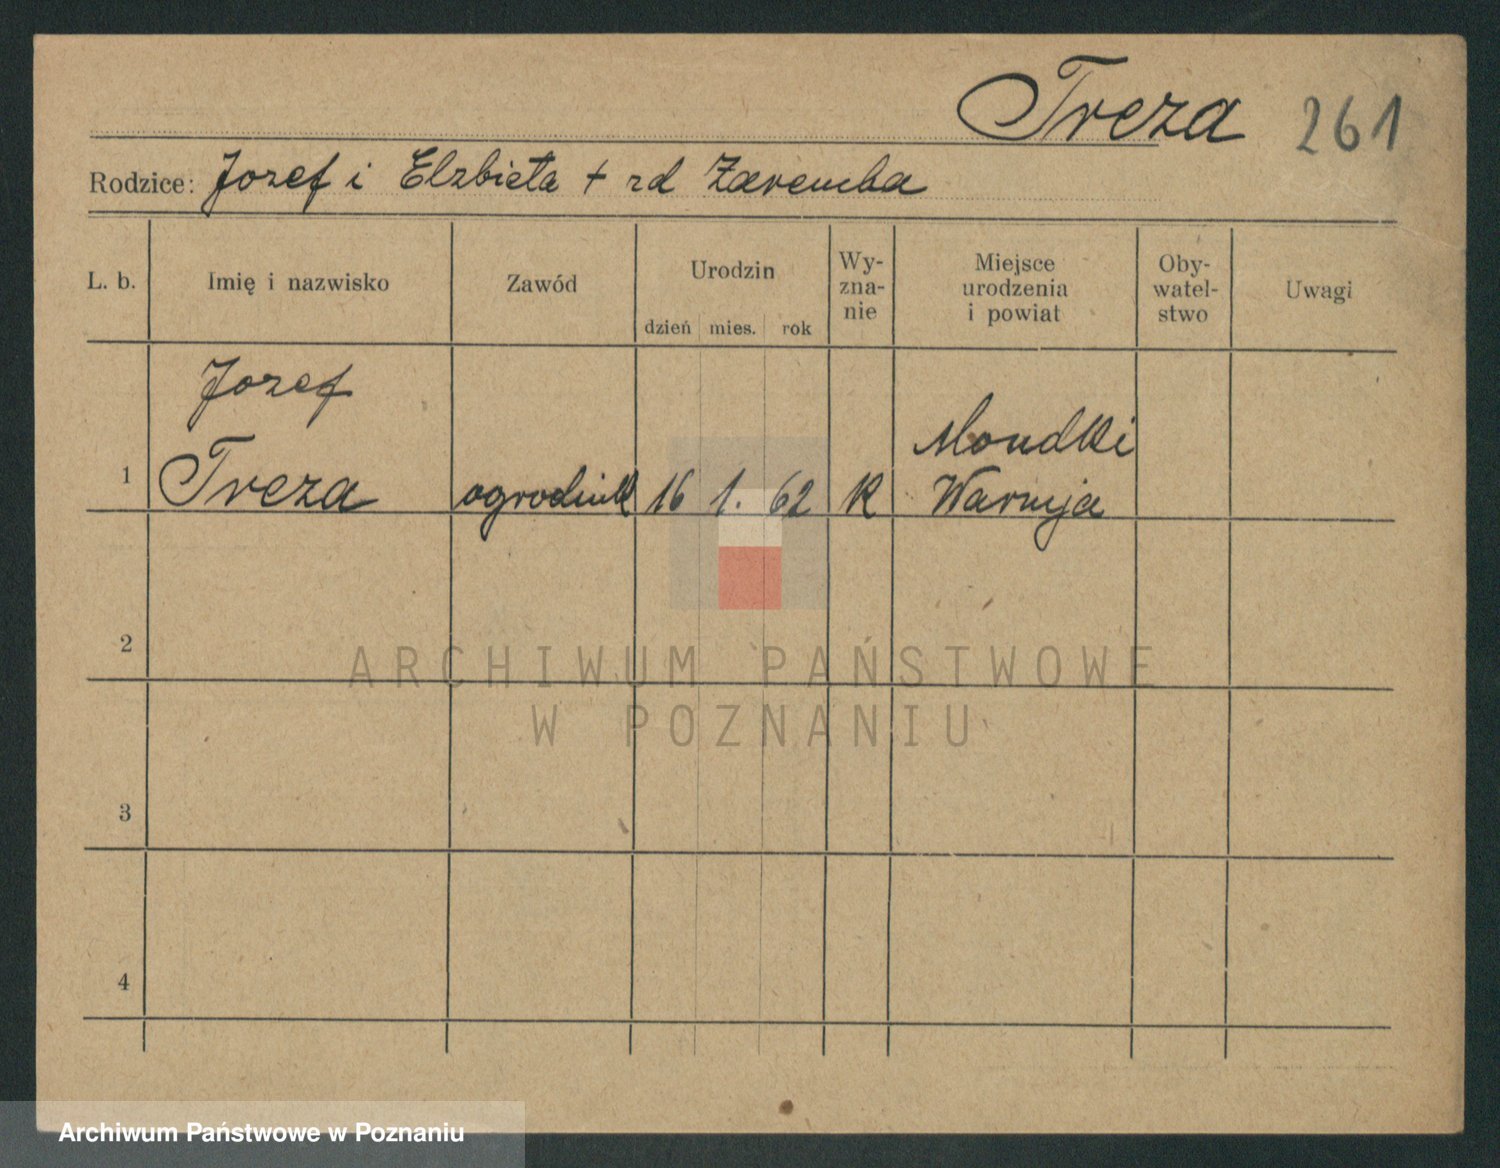 Treza 261
Rodzice: Jozef i Elzbieta + zd Zaremba
L. b. Imię i nazwisko Zawód Urodzin dzień mies. rok Wy-zna-nie Miejsce urodzenia i powiat Oby-watel-stwo Uwagi
Jozef
1 Treza ogrodnik 16 1. 62 K Mondki
Warmja
2
3
4
ARCHIWUM PAŃSTWOWE
W POZNANIU
Archiwum Państwowe w Poznaniu